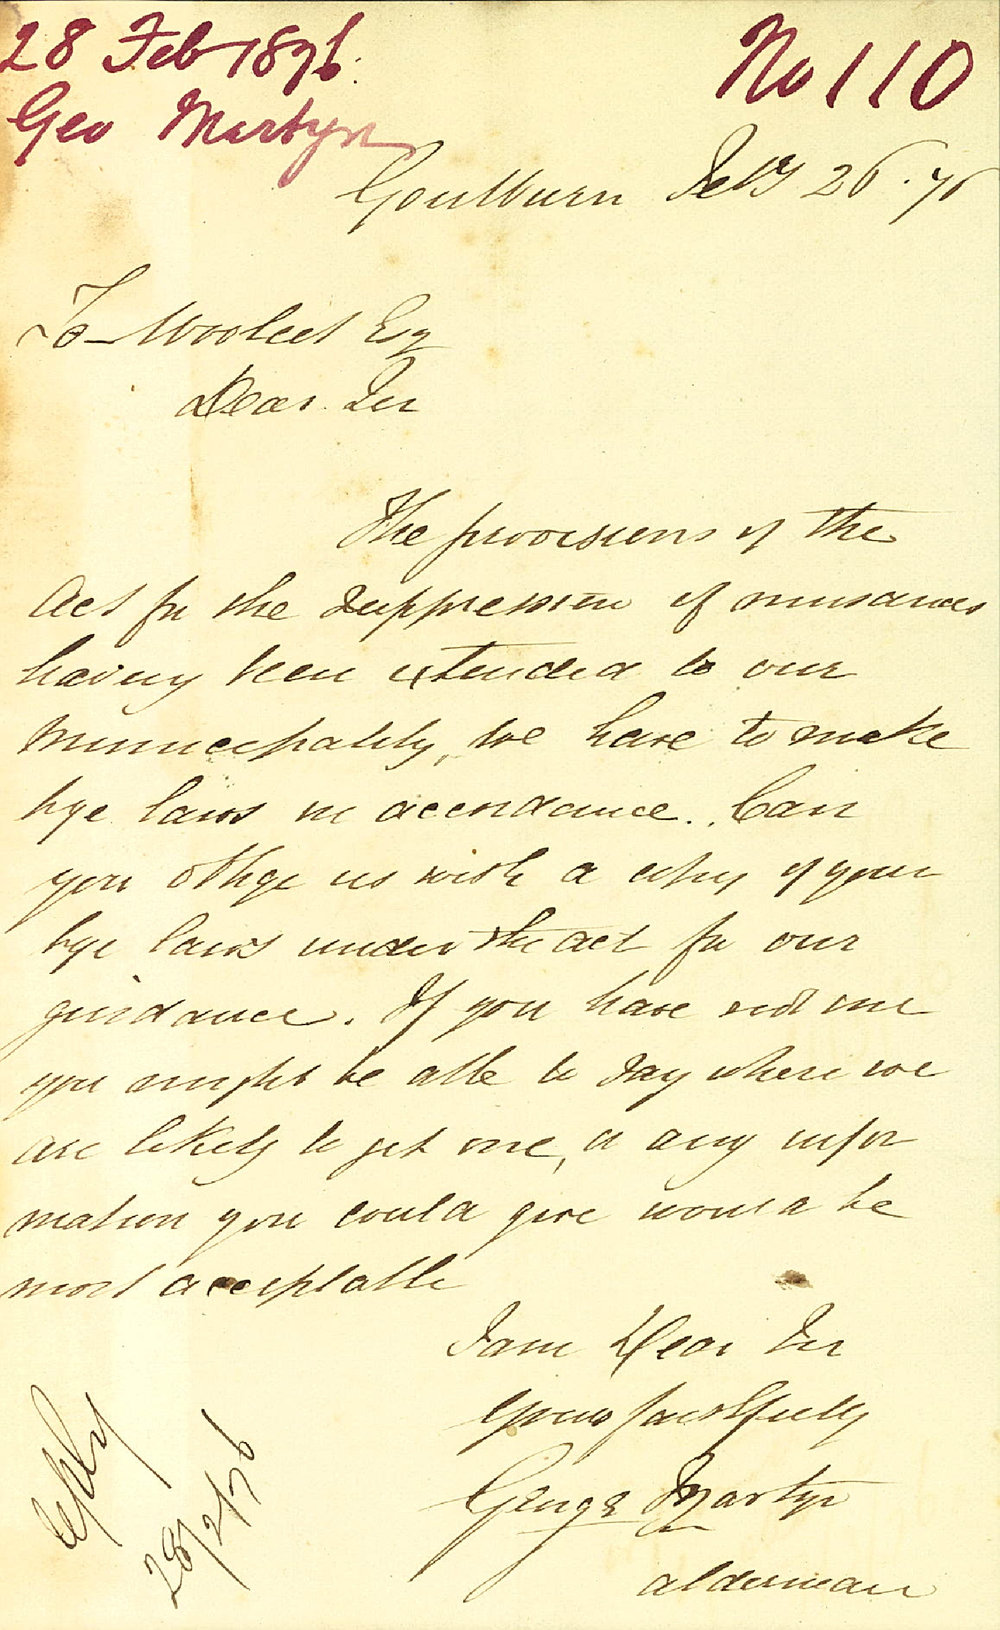 28 Feb 1876.
Geo Martyn
No 110
Goulburn Feby 26. 76
To Woolcott Esq
Dear Sir
The provisions of the
Act for the suppression of nuisances
having been extended to our
Municipality, we have to make
bye laws in accordance. Can
you oblige us with a copy of your
bye laws under the act for our
guidance. If you have not one
you might be able to say where we
are likely to get one, or any infor
mation you could give would be
most acceptable
I am Dear Sir
Yours faithfully
George Martyn
alderman
reply
28/2/76